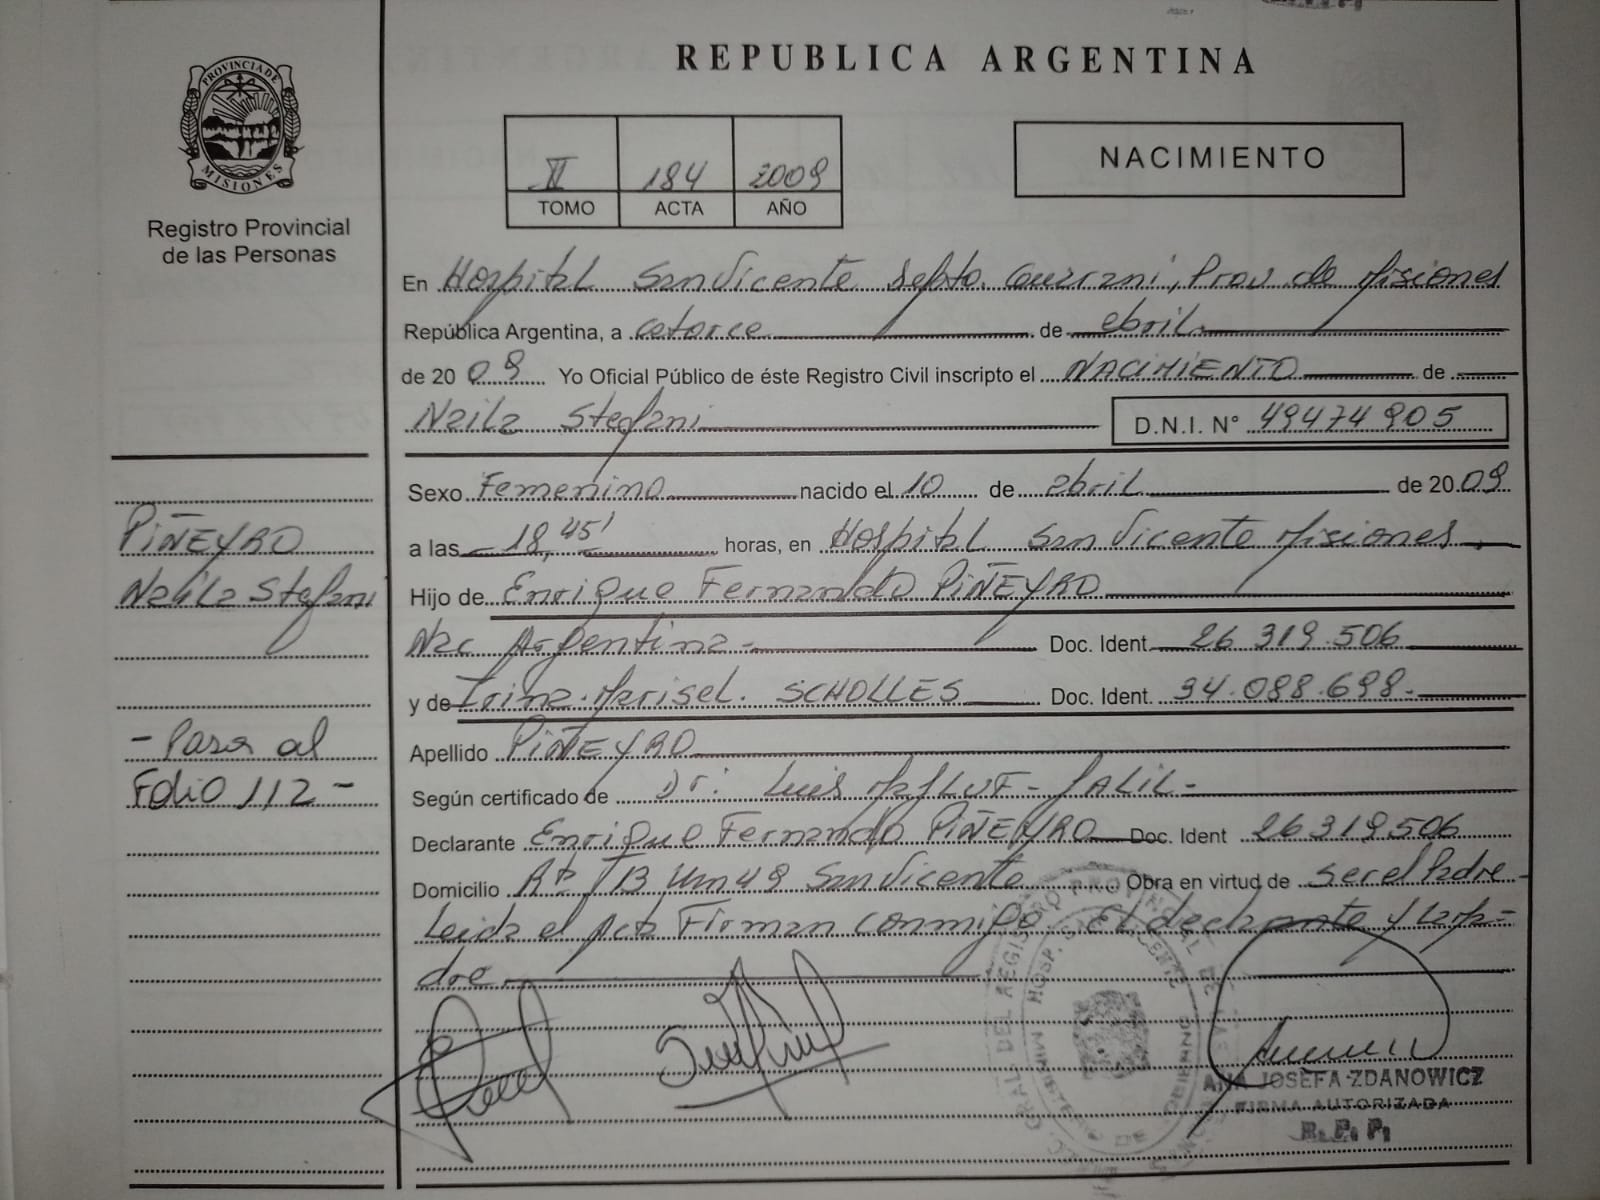 REPUBLICA ARGENTINA
PROVINCIA DE
MISIONES
Registro Provincial
de las Personas
II 184 2009
TOMO ACTA AÑO
NACIMIENTO
En Hospital San Vicente Depto. Guarani, Prov. de Misiones
República Argentina, a catorce de abril
de 20 09 Yo Oficial Público de éste Registro Civil inscripto el NACIMIENTO de
Naila Stefani D.N.I. N° 49474905
Sexo Femenino nacido el 10 de abril de 20 09
a las 18,45' horas, en Hospital San Vicente Misiones
Hijo de Enrique Fernando PIÑEYRO
Nac Argentina - Doc. Ident. 26.319.506
y de Irina Marisel. SCHOLLES Doc. Ident. 34.088.698.
Apellido PIÑEYRO
Según certificado de Dr: Luis
Declarante Enrique Fernando PIÑEYRO Doc. Ident 26319506
Domicilio Km 48 San Vicente Obra en virtud de ser el Padre
Leida el Acta Firman conmigo El declarante y la ma=
dre
PIÑEYRO
Naila Stefani
- Pasa al
Folio 112 -
ANA JOSEFA ZDANOWICZ
FIRMA AUTORIZADA
R. P. P.